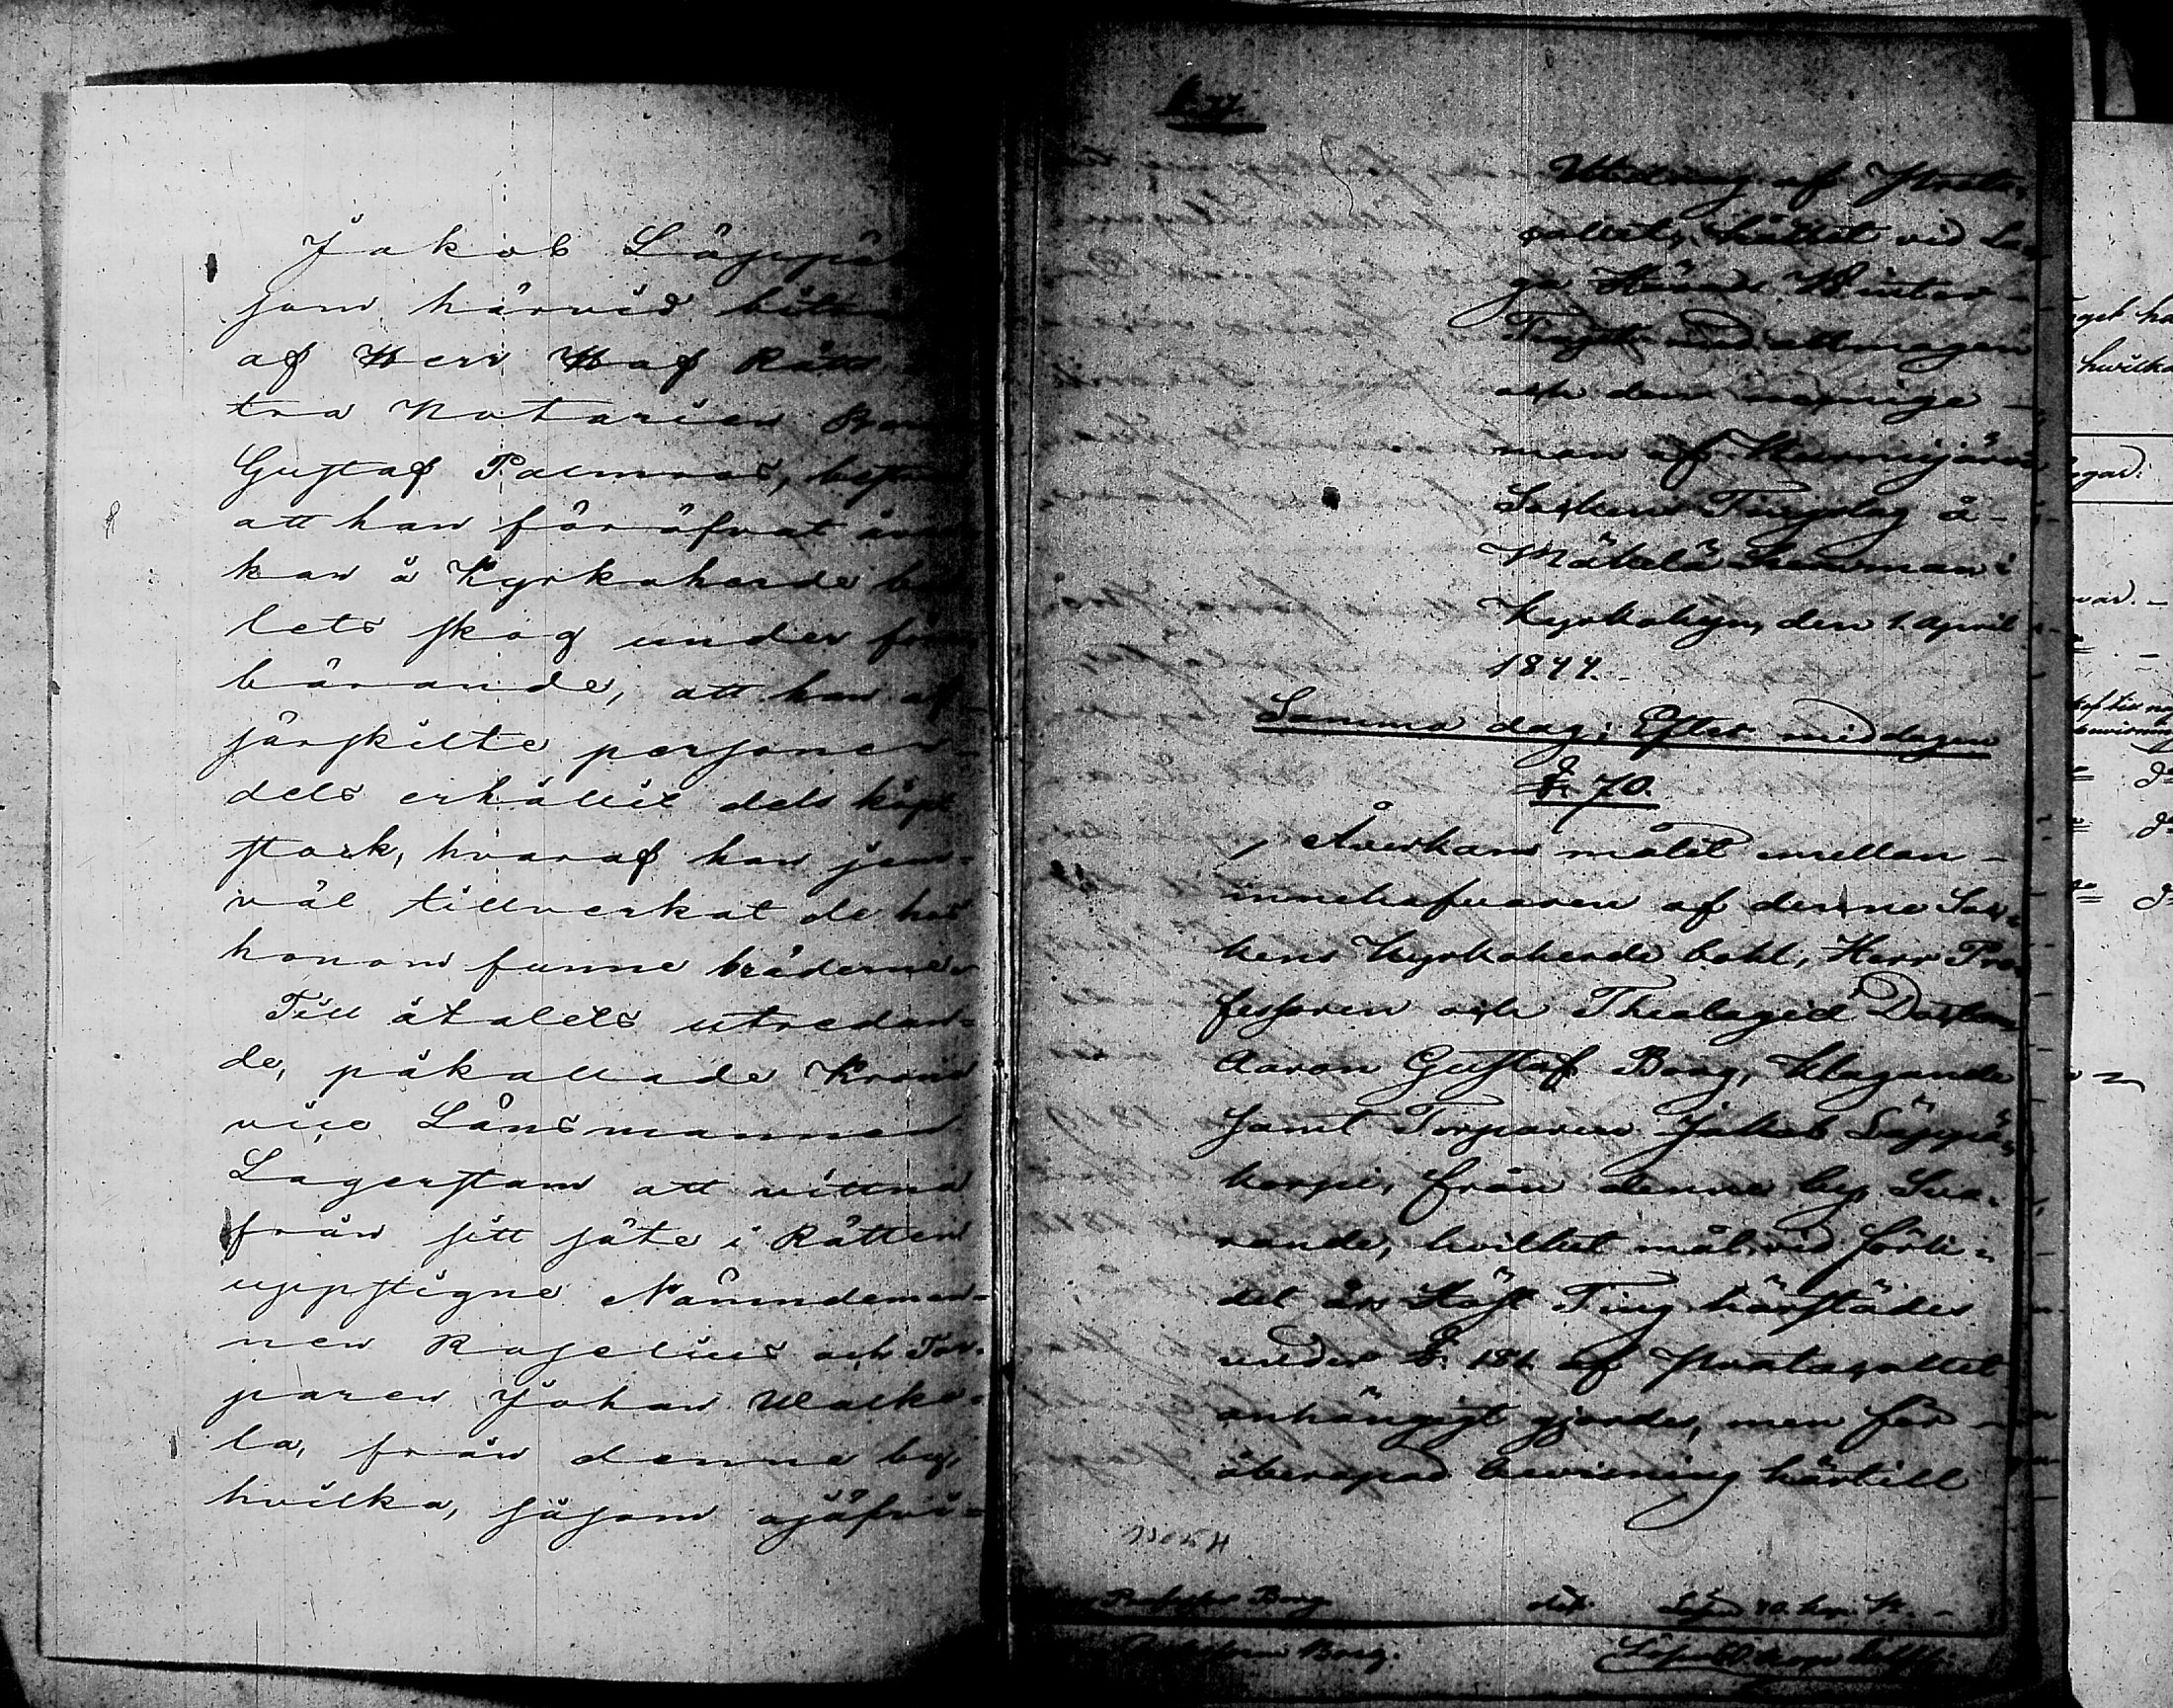 Jakob Läppä
som härvid biträ
af Herr Hof Rätts
tra Notarien
Gustaf Palmroos, bestred
att han föröfvat
kan å Kyrkoherde bo
lets skog under före
bärande, att han af
särskilte personer
dels erhållit dels köpt
stock, hvaraf han jem-
väl tillverkat de hos
honom funne bräderne.
Till åtalets utredan-
de, påkallade Krono
vice Länsmannen
Lagerstam att vittna
från sitt säte i Rätten
uppstigne Nämndeman-
nen Roselius och Tor-
paren Johan Walke-
la, från denne by,
hvilka, såsom ojäfvi-
Utdrag af Proto-
collet, hållet vid La-
ga Härads Winter-
Tinget med allmogen
och den menige-
man af Kurmijärvi
Sockens Tingslag å-
Mäkelä Hemman i
Kyrkobyn den 1 April
1844.
Samma dag; Efter middagen
§. 70.
Åverkans målet emellan-
innehafvaren af denne Soc-
kens Kyrkoherde bohl, Herr Pro-
fessoren och Theologiæ Doctorn
Aaron Gustaf Borg, Klagande
samt Torparen Jakob Läppä-
korpi, från denne by, Sva-
rande, hvilket mål vid förli-
det års Höst Ting härstädes
under §. 181 af Protocollet
anhängigt gjordes, men för-
åberopad bevisning härtill
Professor Borg
Professorn Borg.